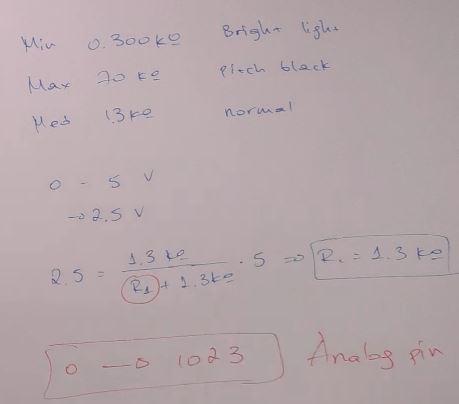 Min 0.300 kΩ Bright light
Max 70 kΩ Pitch black
Med 1.3 kΩ normal
0 - 5 V
→ 2.5 V
2.5 = 1.3 kΩ / (R1 + 1.3 kΩ) · 5 ⇒ R1 = 1.3 kΩ
0 → 1023 Analog pin